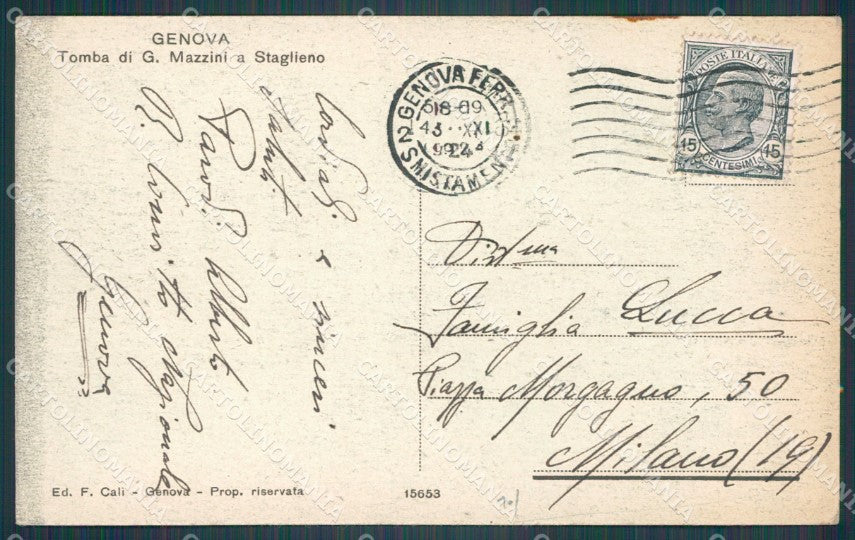 GENOVA
Tomba di G. Mazzini a Staglieno
GENOVA FERR.
18-19
XXI
1924
2 SMISTAMEN
POSTE ITALIANE
15 15
CENTESIMI
Cordiali e sinceri
saluti
Parodi Alberto
Genova
Dist.ma
Famiglia Lucca
Piazza Morgagni, 50
Milano (19)
Ed. F. Cali - Genova - Prop. riservata
15653
CARTOLINOMANIA